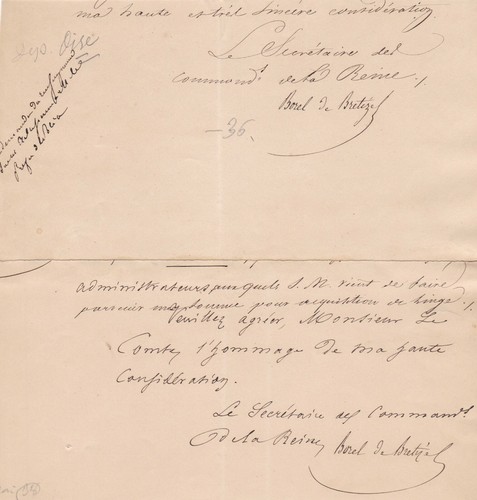 ma haute et très sincère considération.
Le Secrétaire des
Command.ts de la Reine ./.
Borel de Bretizel
Oise
de la Reine
- 36.
administrateurs auxquels S. M. vient de faire
parvenir une somme pour acquisition de linge ./.
Veuillez agréer, Monsieur Le
Comte, l'hommage de ma haute
Considération.
Le Secrétaire des Command.ts
de la Reine, Borel de Bretizel